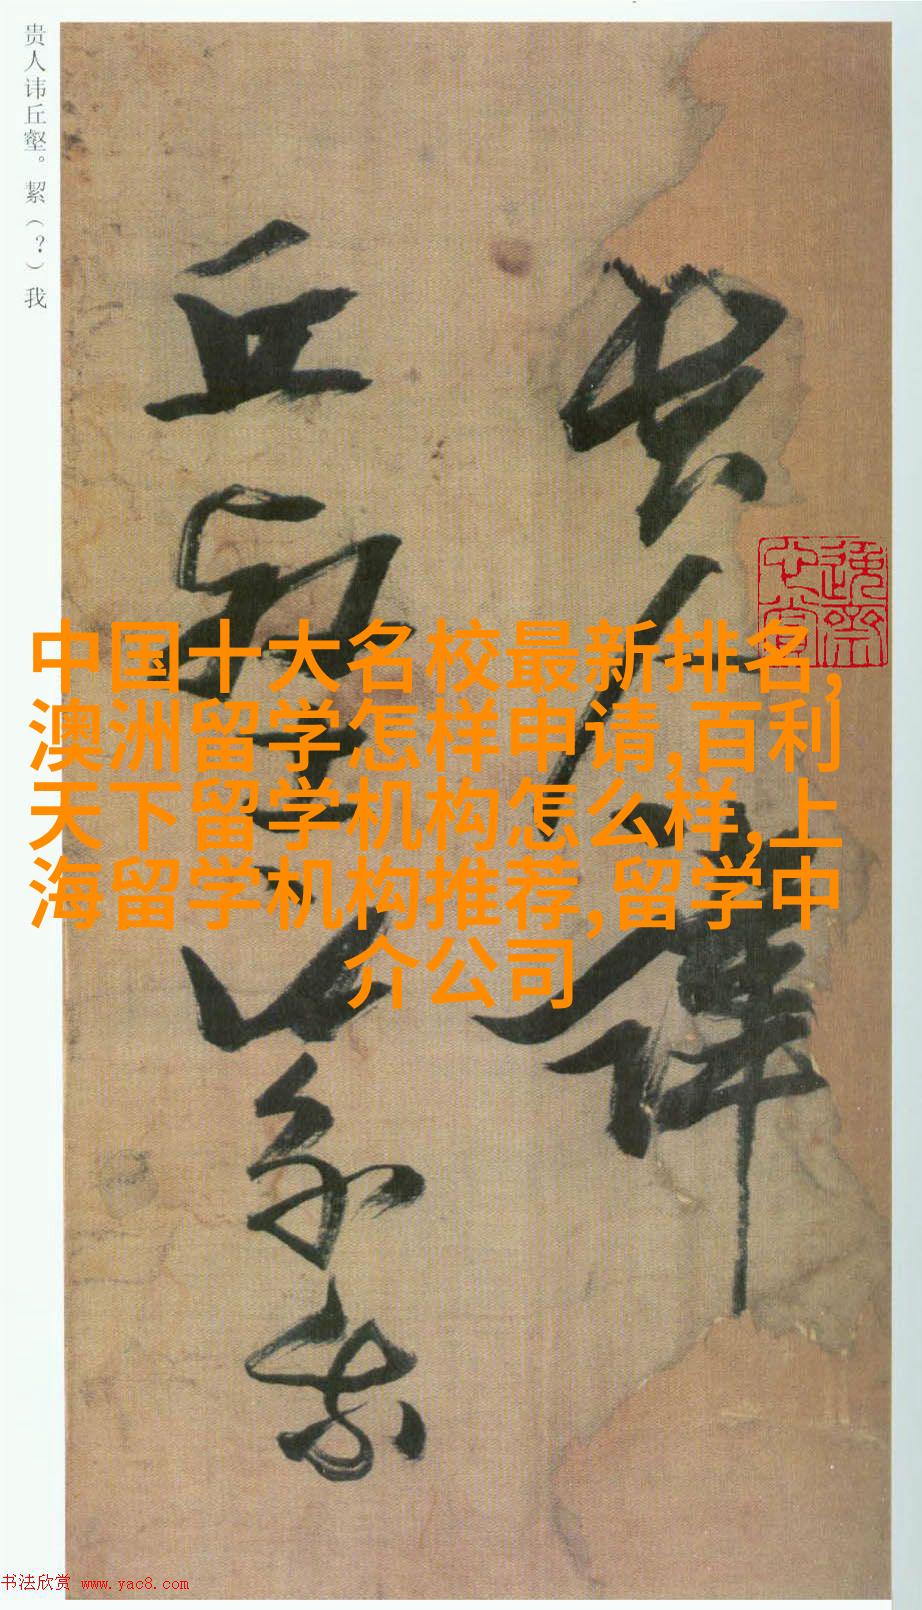 贵人讳丘壑。絜（？）我
贵人讳
丘壑絜我
中国十大名校最新排名,
澳洲留学怎样申请,百利
天下留学机构怎么样,上
海留学机构推荐,留学中
介公司
书法欣赏 www.yac8.com